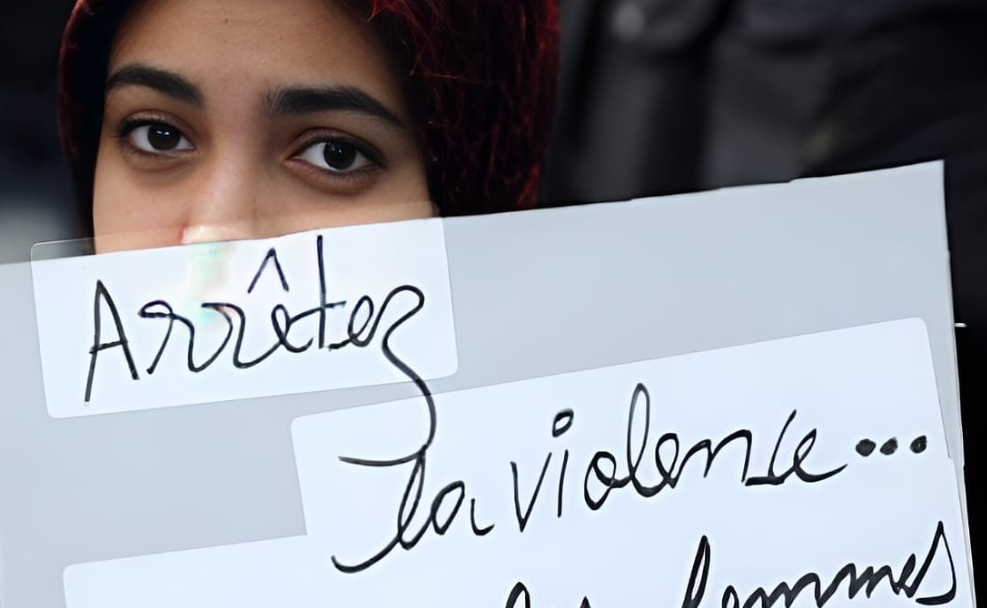 Arrêtez
la violence...
les femmes